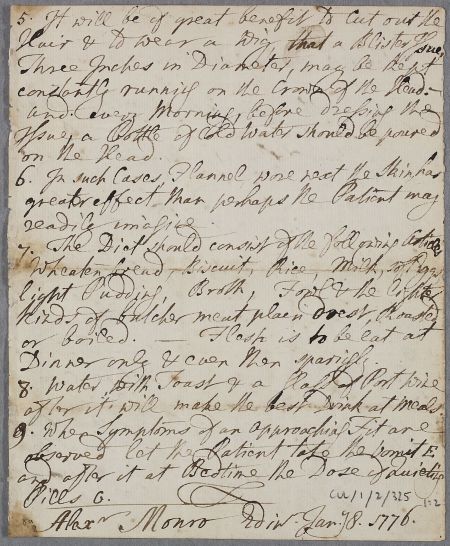 5. It will be of great benefit to cut out the
Hair & to wear a Wig, that a Blister Issue,
Three Inches in Diameter, may be kept
constantly running on the Crown of the Head:
and every Morning, before dressing the
Issue, a Bottle of Cold Water should be poured
on the Head.
6. In such Cases, Flannel wore next the Skin has
greater effect than perhaps the Patient may
readily imagine.
7. The Diet should consist of the following Articles
Wheaten bread, Biscuit, Rice Milk, soft Eggs
light Pudding, Broth, Fowl & the lighter
kinds of butcher meat plain drest, Roasted
or boiled. — Flesh is to be eat at
Dinner only & even then sparingly
8. Water with Toast & a Glass of Port wine
after it, will make the best Drink at meals
9. When Symptoms of an approaching Fit are
observed let the Patient take the Vomit E.
and after it at Bedtime the Dose of quieting
Pills G.
CUL/1/2/325
1:2
Alexr. Monro Edinr. Jany 8. 1776.